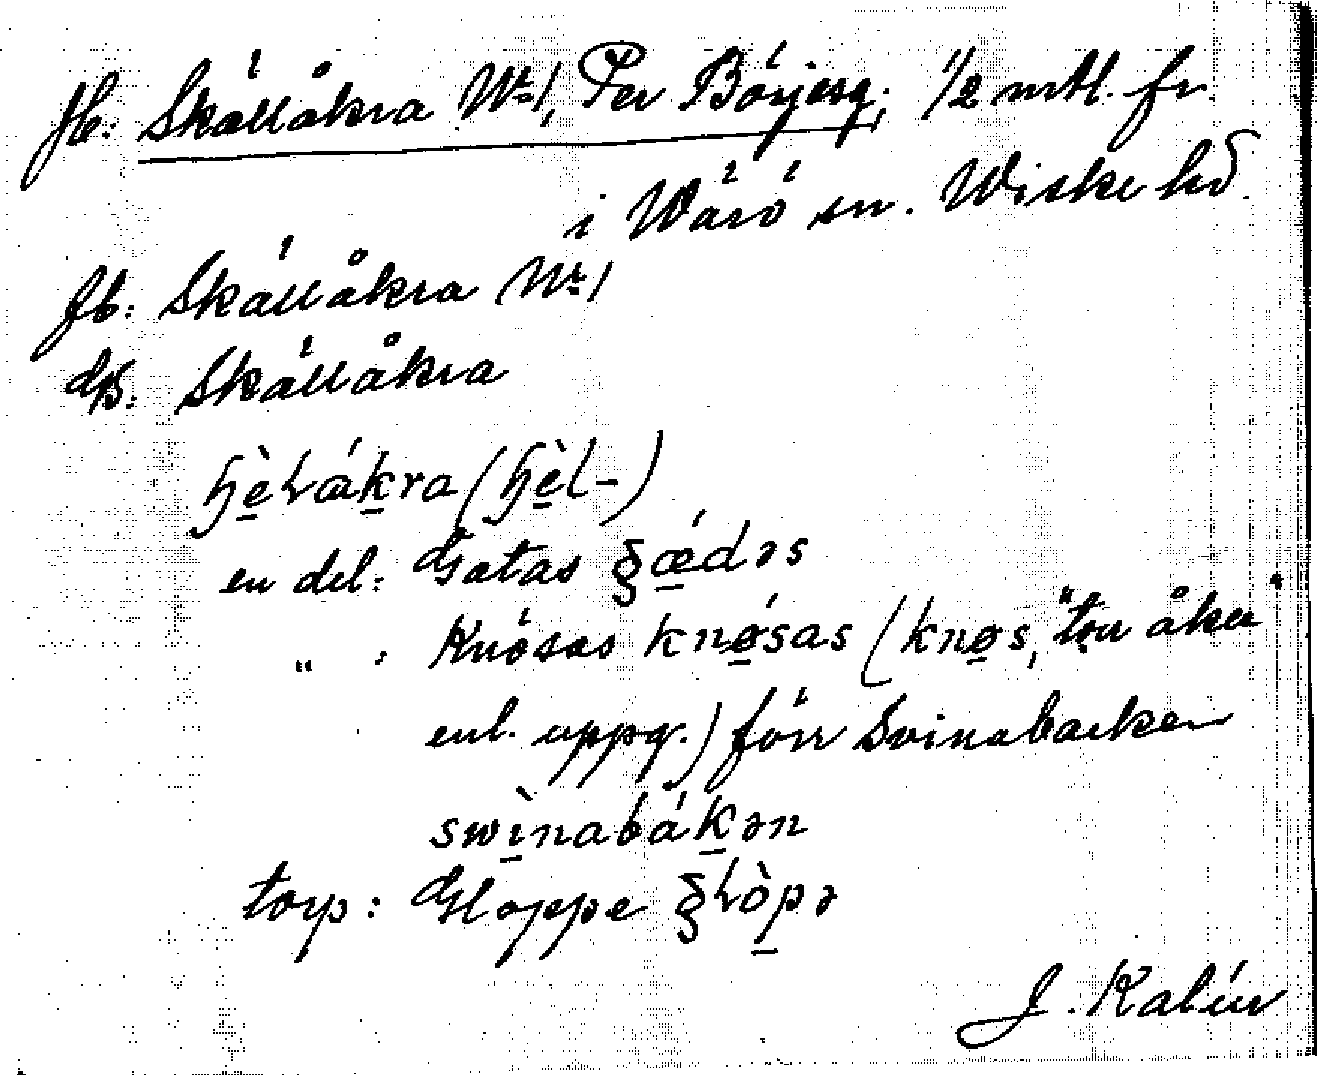 jb: Skällåkra Nr 1, Per Börjesg; 1/2 mtl. fr.
i Wärö sn. Wiske hd.
fb: Skällåkra Nr 1
ds: Skällåkra
en del: Gatas
" : Knösas knøsas (knøs, "torr åker"
enl. uppg.) förr Svinabacken
swìnabákən
torp: Gloppe
J. Kalén